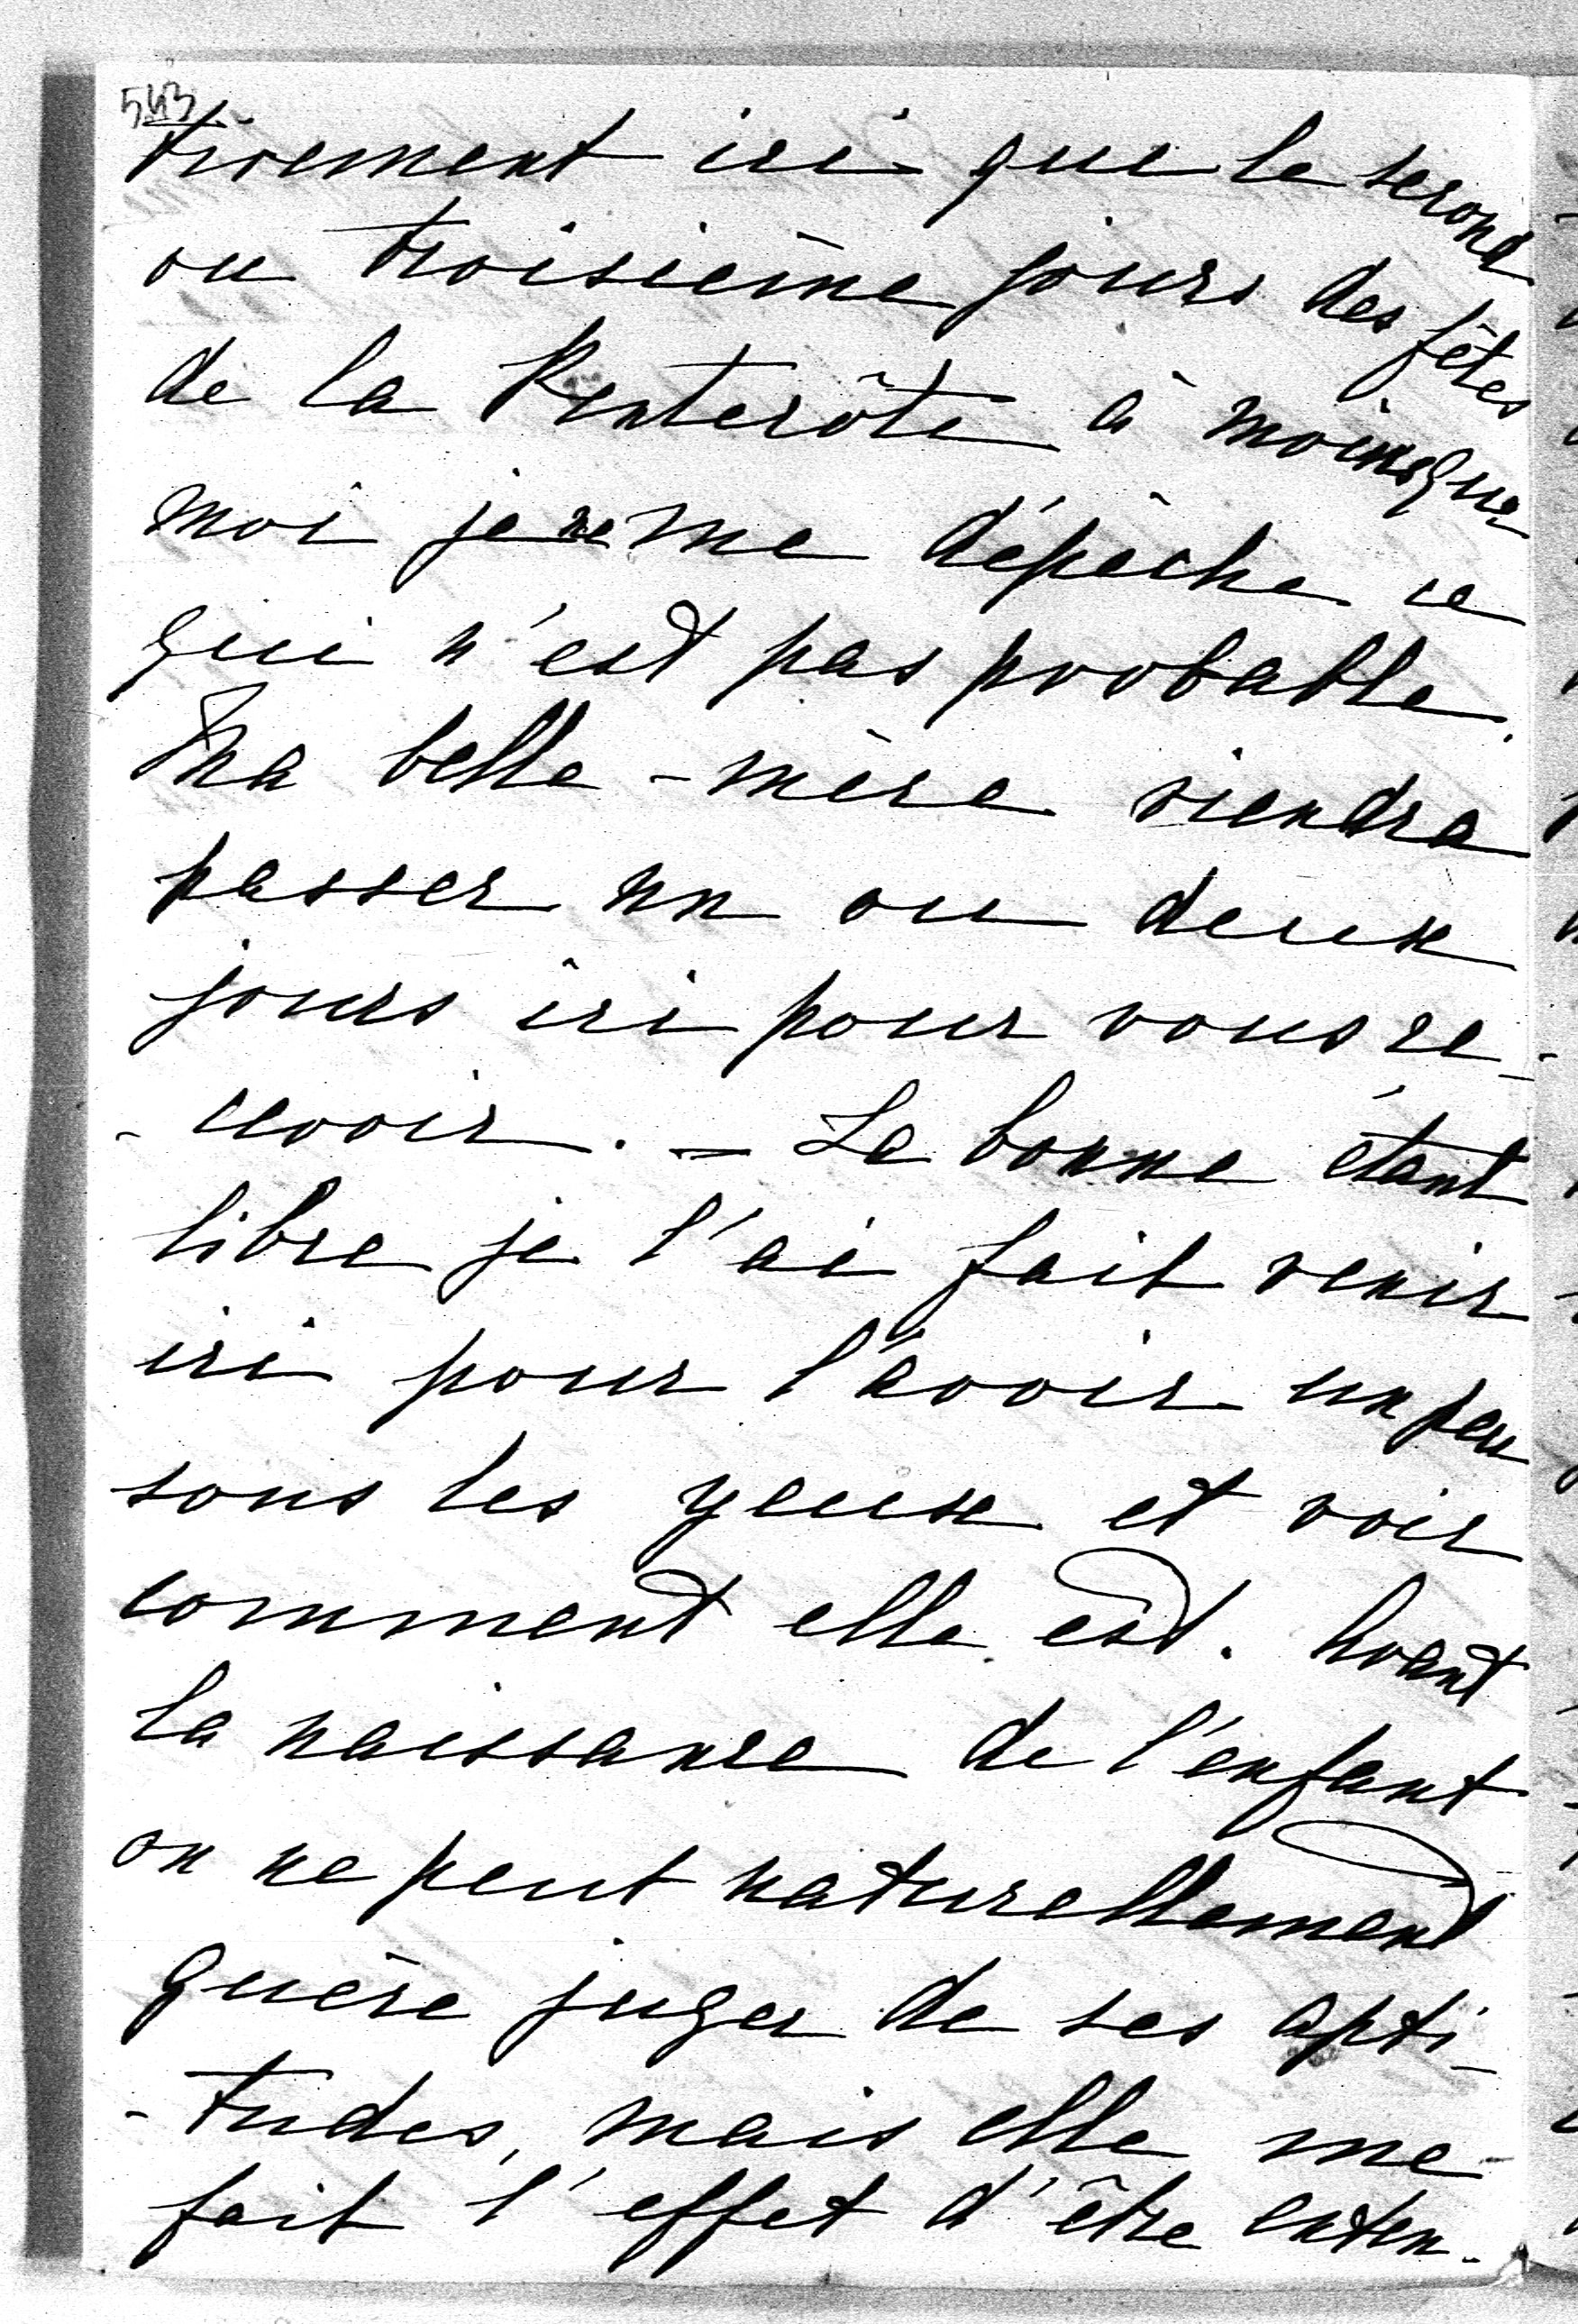 543
trement ici que le second
ou troisième jours des fêtes
de la Pentecôte à moins que
moi je ne me dépêche ce
qui n'est pas probable.
Ma belle-mère viendra
passer un ou deux
jours ici pour vous re-
-cevoir. — La bonne étant
libre je l'ai fait venir
ici pour l'avoir un peu
sous les yeux et voir
comment elle est. Avant
la naissance de l'enfant
on ne peut naturellement
guère juger de ses apti-
-tudes, mais elle me
fait l'effet d'être enten-